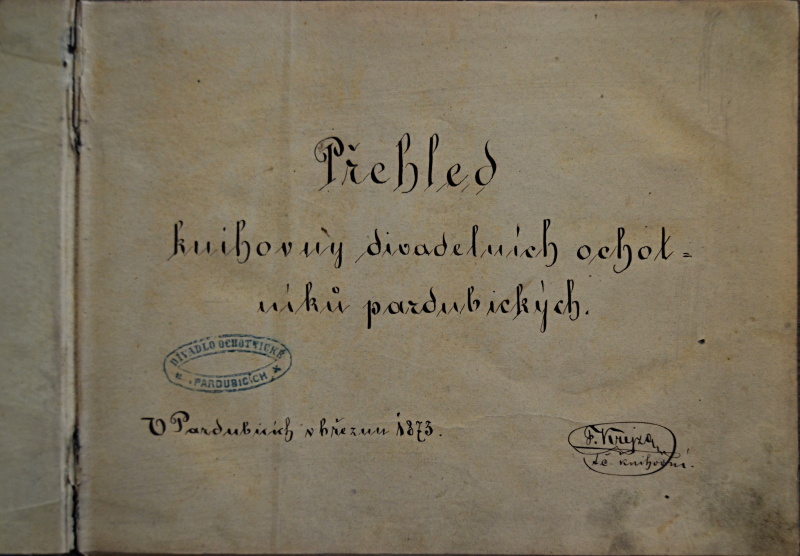 Přehled
knihovny divadelních ochot=
níků pardubických.
DIVADLO OCHOTNICKÉ
PARDUBICÍCH
V Pardubicích v březnu 1873.
F. Krejza
knihovní.